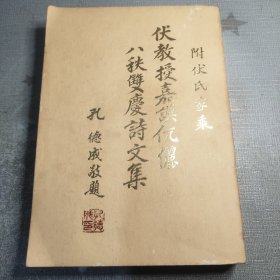 附伏氏家乘
伏教授嘉謨伉儷
八秩雙慶詩文集
孔德成敬題